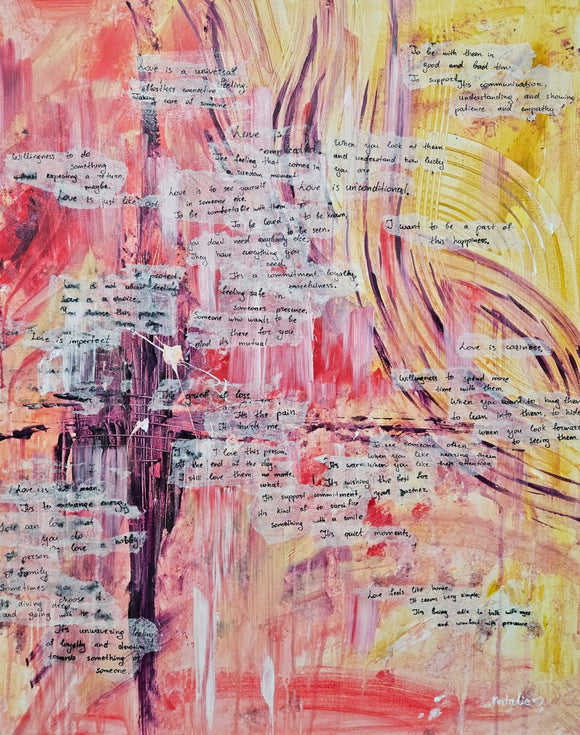 Love is a universal
feeling.
effortless connection.
Taking care of someone
To be with them in
good and bad time.
To support.
It's communication,
understanding and showing
patience and empathy.
Love is
"complicated."
The feeling that comes in
random moment
When you look at them
and understand how lucky
you are
Willingness to do
something
without expecting a return,
maybe.
Love is just like
Love is to see yourself
in someone else.
To be comfortable with them
Love is unconditional.
To be loved is to be known,
to be seen.
you don't need anybody else.
They have everything you
need.
I want to be a part of
this happiness.
It's a commitment, loyalty,
carefulness.
feeling safe in
someones presence,
Someone who wants to be
there for you
and it's mutual
Love is not about feelings
Love is a choice.
you choose this every day
Love is
Love is imperfect
Love is coziness.
Willingness to spend more
time with them.
When you want to hug them
to lean into them, to
when you look forward
to seeing them.
The grief of loss
It's the pain.
It hurts me.
I love this person.
at the end of the day,
I still love them no matter
what.
To see someone often,
when you like hearing them
when you like their attention
It's warm
It's wishing the best for
your partner.
It's support, commitment,
It's kind of to sacrifice
something with a smile
It's quiet moments,
Love is
It's to exchange energy
Love can be what
you do
love a hobby
person
family
Sometimes you choose it.
It's diving deep
and going with the
It's unwavering feeling
of loyalty and devotion
towards something or
someone.
Love feels like home.
It seems very simple.
It's being able to talk with eyes
and comfort with presence.
Natalie